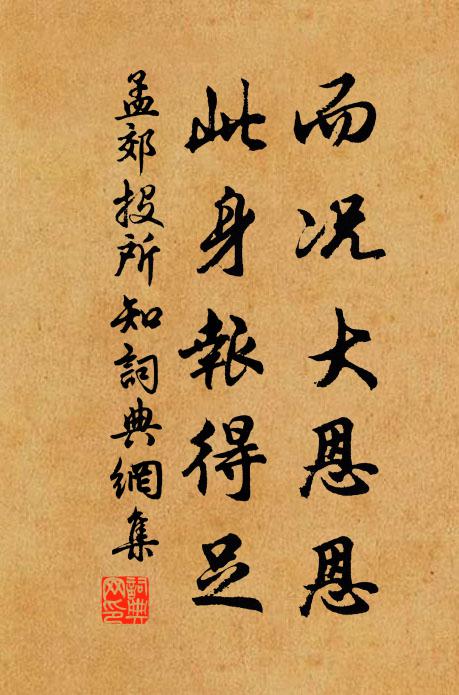 而况大恩恩
此身報得足
孟郊投所知詞典網集
詞典网印